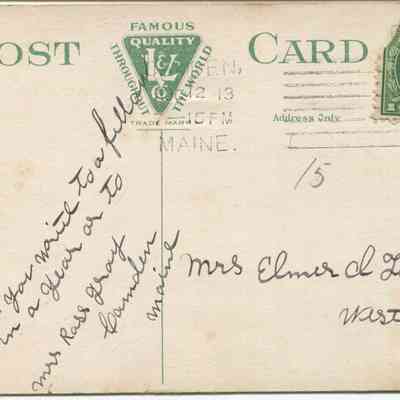 POST CARD
FAMOUS
QUALITY
THROUGHOUT
THE WORLD
TRADE MARK
EN,
12 13
-15 PM
MAINE.
Address Only
15
you write to a fello
in a year or to
Mrs Ross Gray
Camden
Maine
Mrs Elmer
West